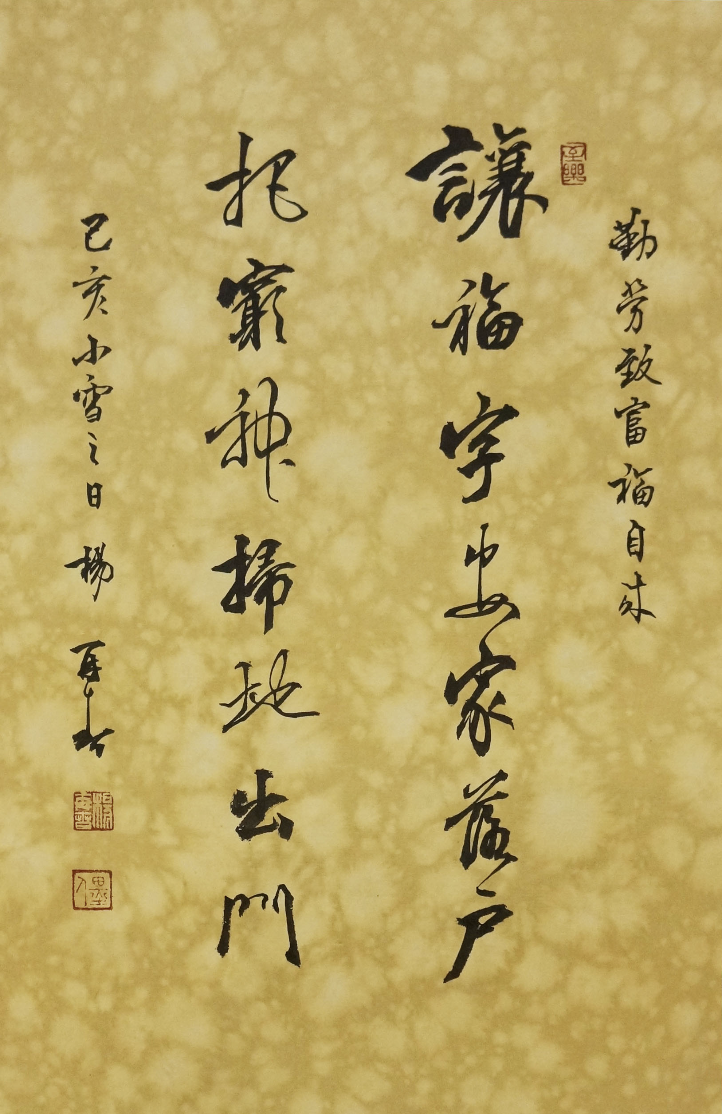 勤劳致富福自来
讓福字安家落户
把窮神掃地出門
己亥小雪之日 楊再春